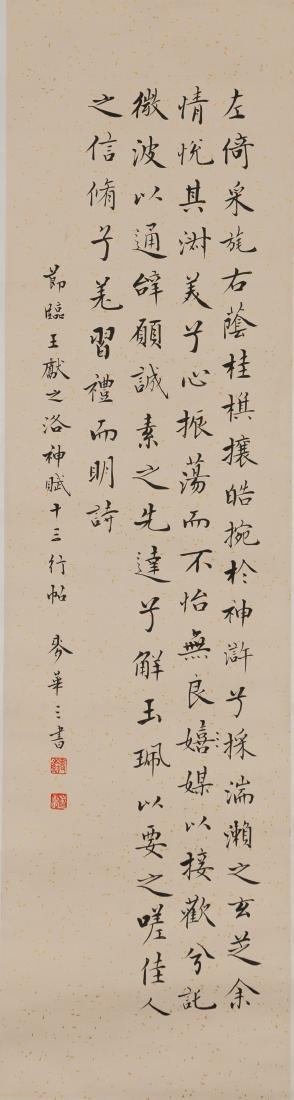 左倚采旄右蔭桂棋攘皓捥於神滸兮採湍瀨之玄芝余
情悅其淑美兮心振蕩而不怡無良嬉媒以接歡兮託
微波以通辭願誠素之先達兮解玉珮以要之嗟佳人
之信脩兮羌習禮而明詩
節臨王獻之洛神賦十三行帖 麥華三書